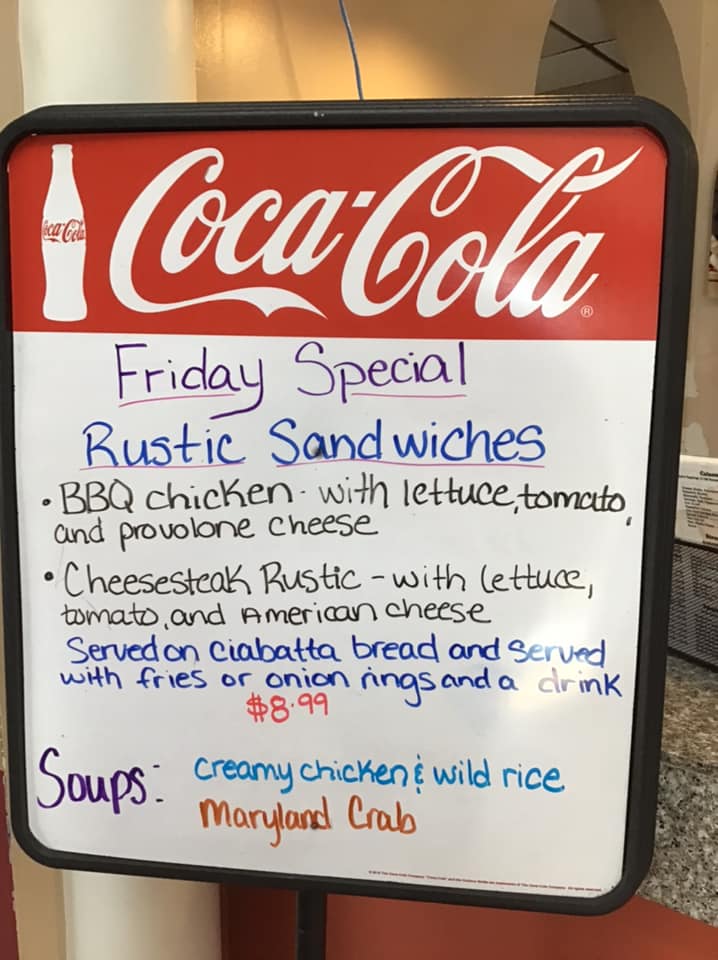 Coca-Cola
Coca-Cola ®
Friday Special
Rustic Sandwiches
• BBQ chicken - with lettuce, tomato,
and provolone cheese
• Cheesesteak Rustic - with lettuce,
tomato, and American cheese
Served on ciabatta bread and served
with fries or onion rings and a drink
$8.99
Soups: creamy chicken & wild rice
Maryland Crab